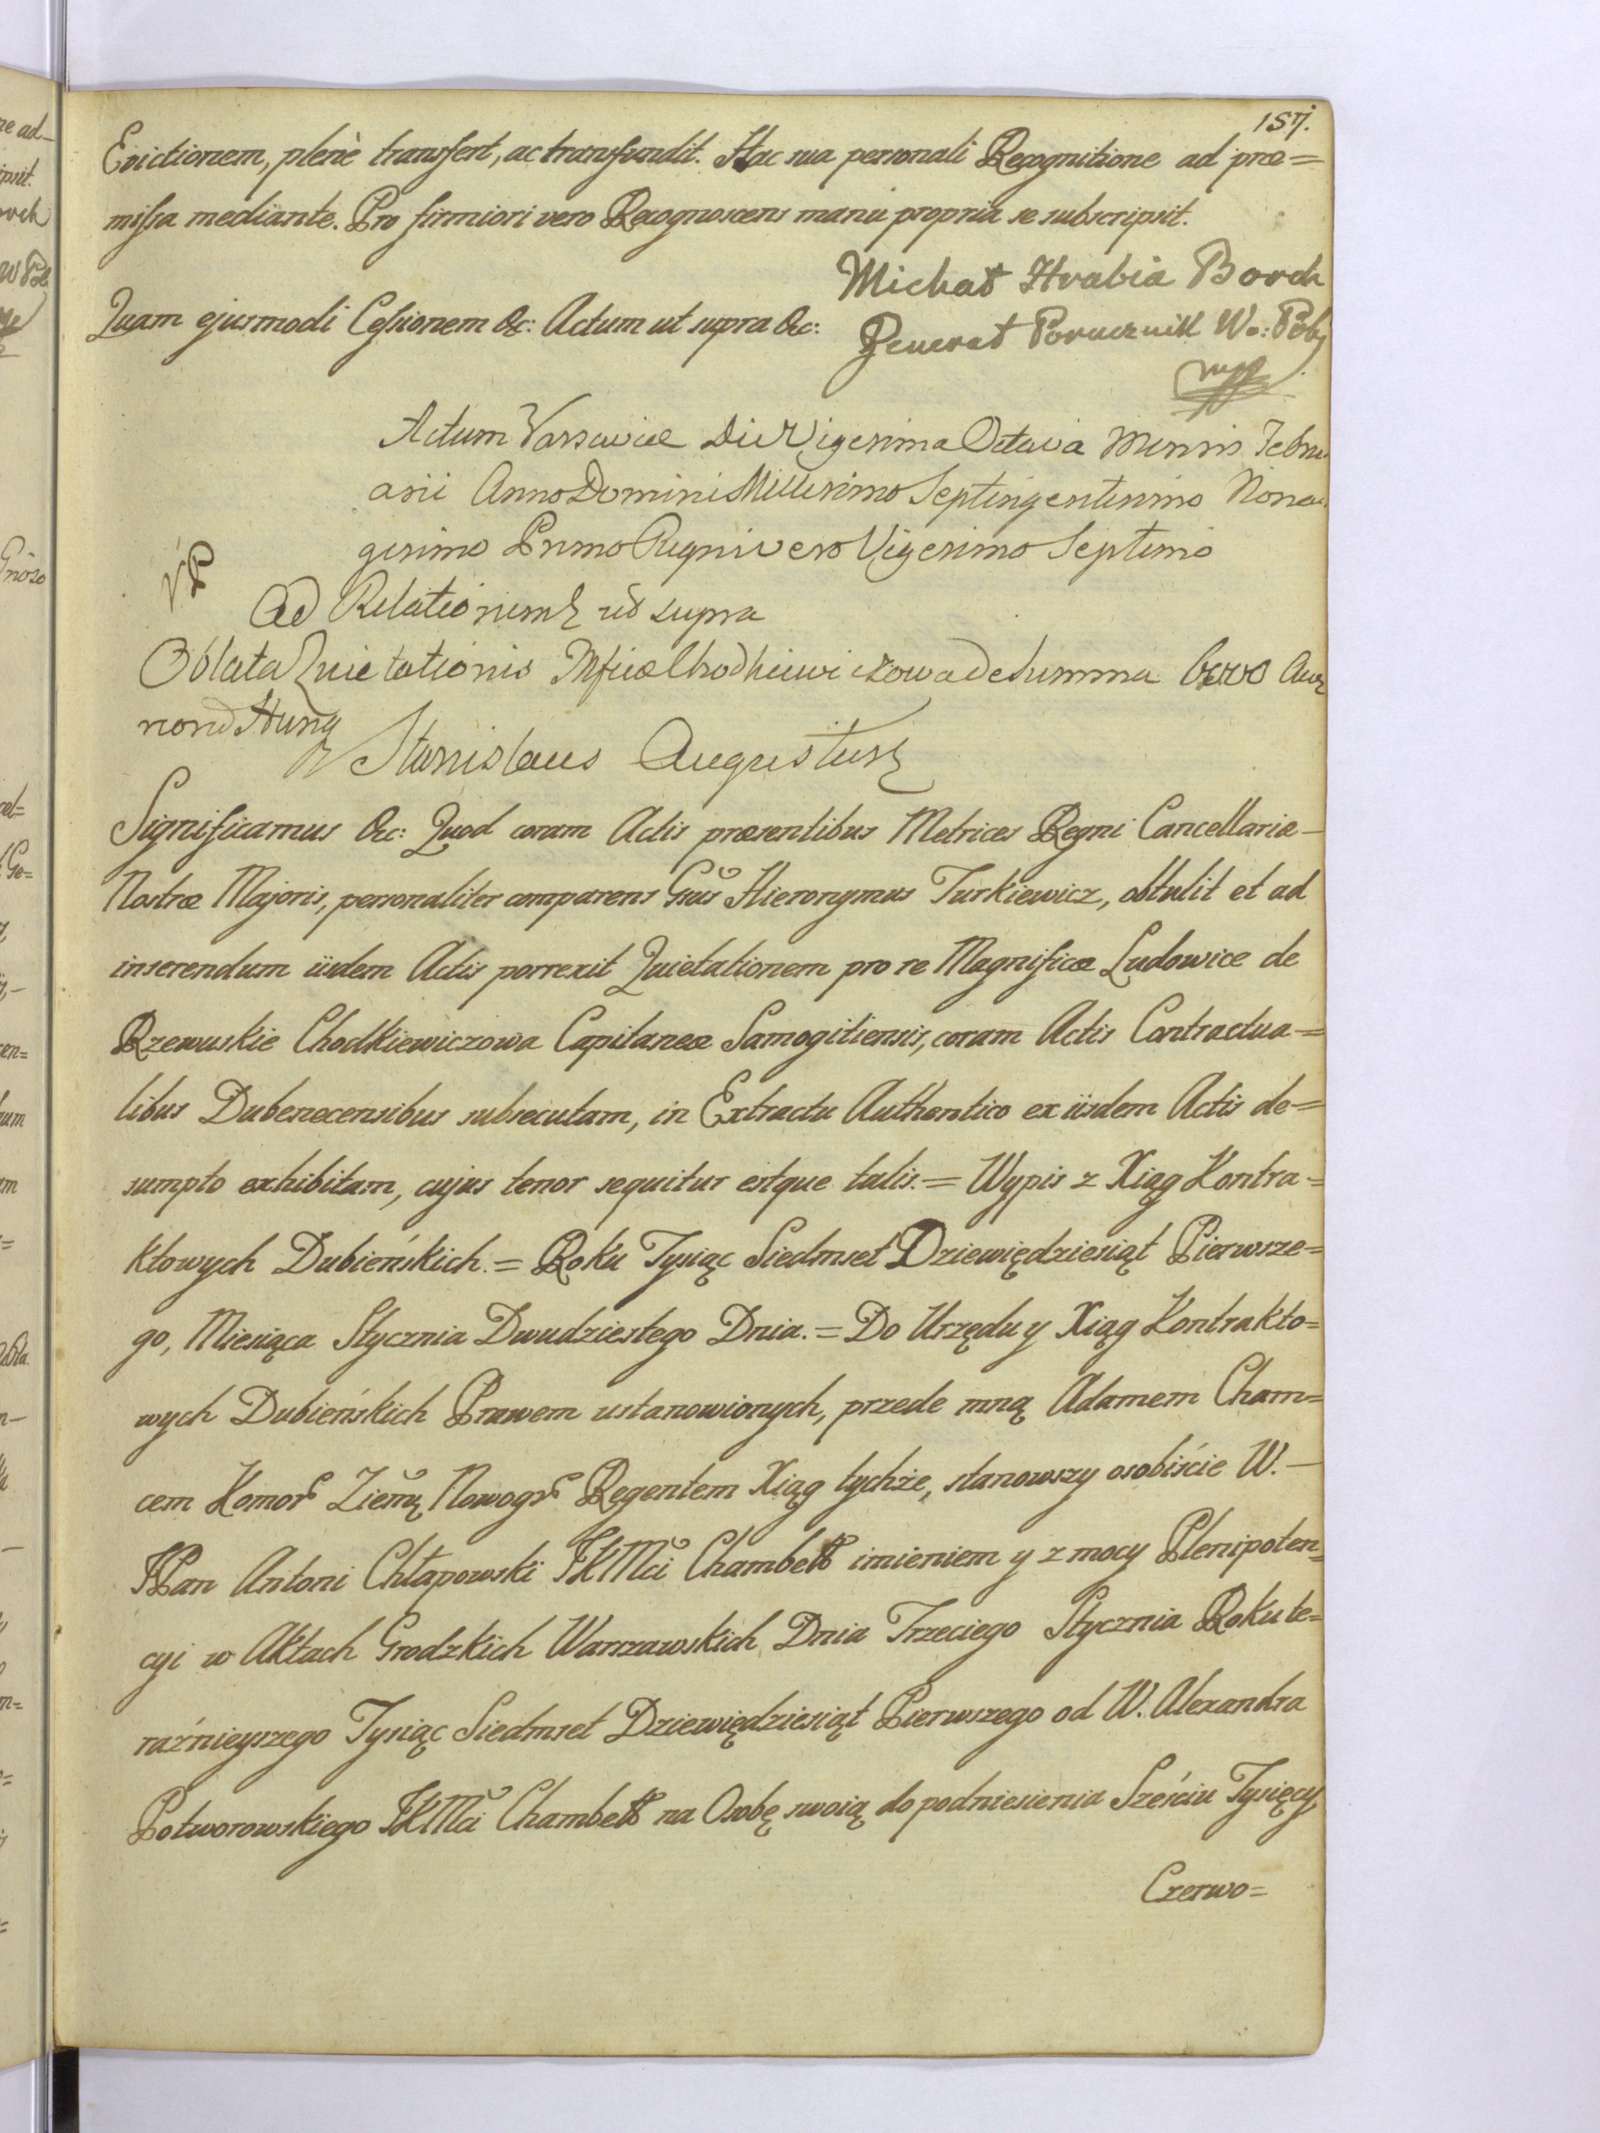 157.
Evictionem, plenè transfert, ac transfundit. Hac sua personali Recognitione ad præ=
missa mediante. Pro firmiori vero Recognoscens manu propria se subscripsit.
Michał Hrabia Borch
Quam ejusmodi Cessionem &c: Actum ut supra &c:
Generał Porucznik Wo: Pol:
mpp
Actum Varsaviæ Die Vigesima Octava Mensis Febru
arii Anno Domini Millesimo Septingentesimo Nona
gesimo Primo Regni vero Vigesimo Septimo
Ad Relationem ut supra
Oblata Quietationis Mficæ Chodkiewiczowa de Summa 6000 Aur
Hung
Stanislaus Augustus
Significamus &c: Quod coram Actis præsentibus Metrices Regni Cancellariæ
Nostræ Majoris, personaliter comparens Gnus Hieronymus Turkiewicz, obtulit et ad
inserendum iisdem Actis porrexit Quietationem pro re Magnificæ Ludowice de
Rzewuskie Chodkiewiczowa Capitaneæ Samogitiensis, coram Actis Contractua=
libus Dubenecensibus subsecutam, in Extractu Authentico ex iisdem Actis de=
sumpto exhibitam, cujus tenor sequitur estque talis. = Wypis z Xiąg Kontra=
ktowych Dubieńskich. = Roku Tysiąc Siedmset Dziewiędziesiąt Pierwsze=
go, Miesiąca Stycznia Dwudziestego Dnia. = Do Urzędu y Xiąg Kontrakto=
wych Dubieńskich Prawem ustanowionych, przede mną Adamem Cham=
cem Komor Ziem Nowogr Regentem Xiąg tychże, stanowszy osobiście W.
JPan Antoni Chłapowski JKMci Chambell imieniem y z mocy Plenipoten=
cyi w Aktach Grodzkich Warszawskich Dnia Trzeciego Stycznia Roku te=
raźnieyszego Tysiąc Siedmset Dziewiędziesiąt Pierwszego od W. Alexandra
Potworowskiego JKMci Chambell na Osobę swoią do podniesienia Sześciu Tysięcy
Czerwo=